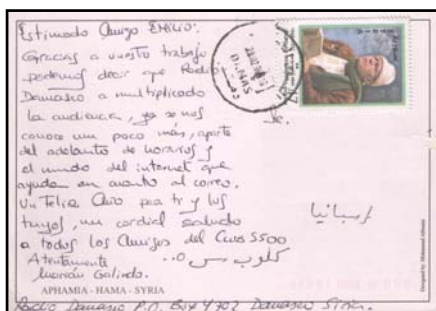 Estimado Amigo EMILIO:
Gracias a vuestro trabajo
podemos decir que Radio
Damasco a multiplicado
la audiencia, ya se nos
conoce un poco más, aparte
del adelanto de horarios y
el mundo del internet que
ayuda en cuanto al correo.
Un Feliz Año para ti y los
tuyos, un cordial saludo
a todos los Amigos del Club S500
Atentamente
كلوب س ٥٠٠
Marián Galindo.
إسبانيا
SYRIA
APHAMIA - HAMA - SYRIA
Designed by: Mohamad
Radio Damasco P.O. Box 4702 Damasco Siria.